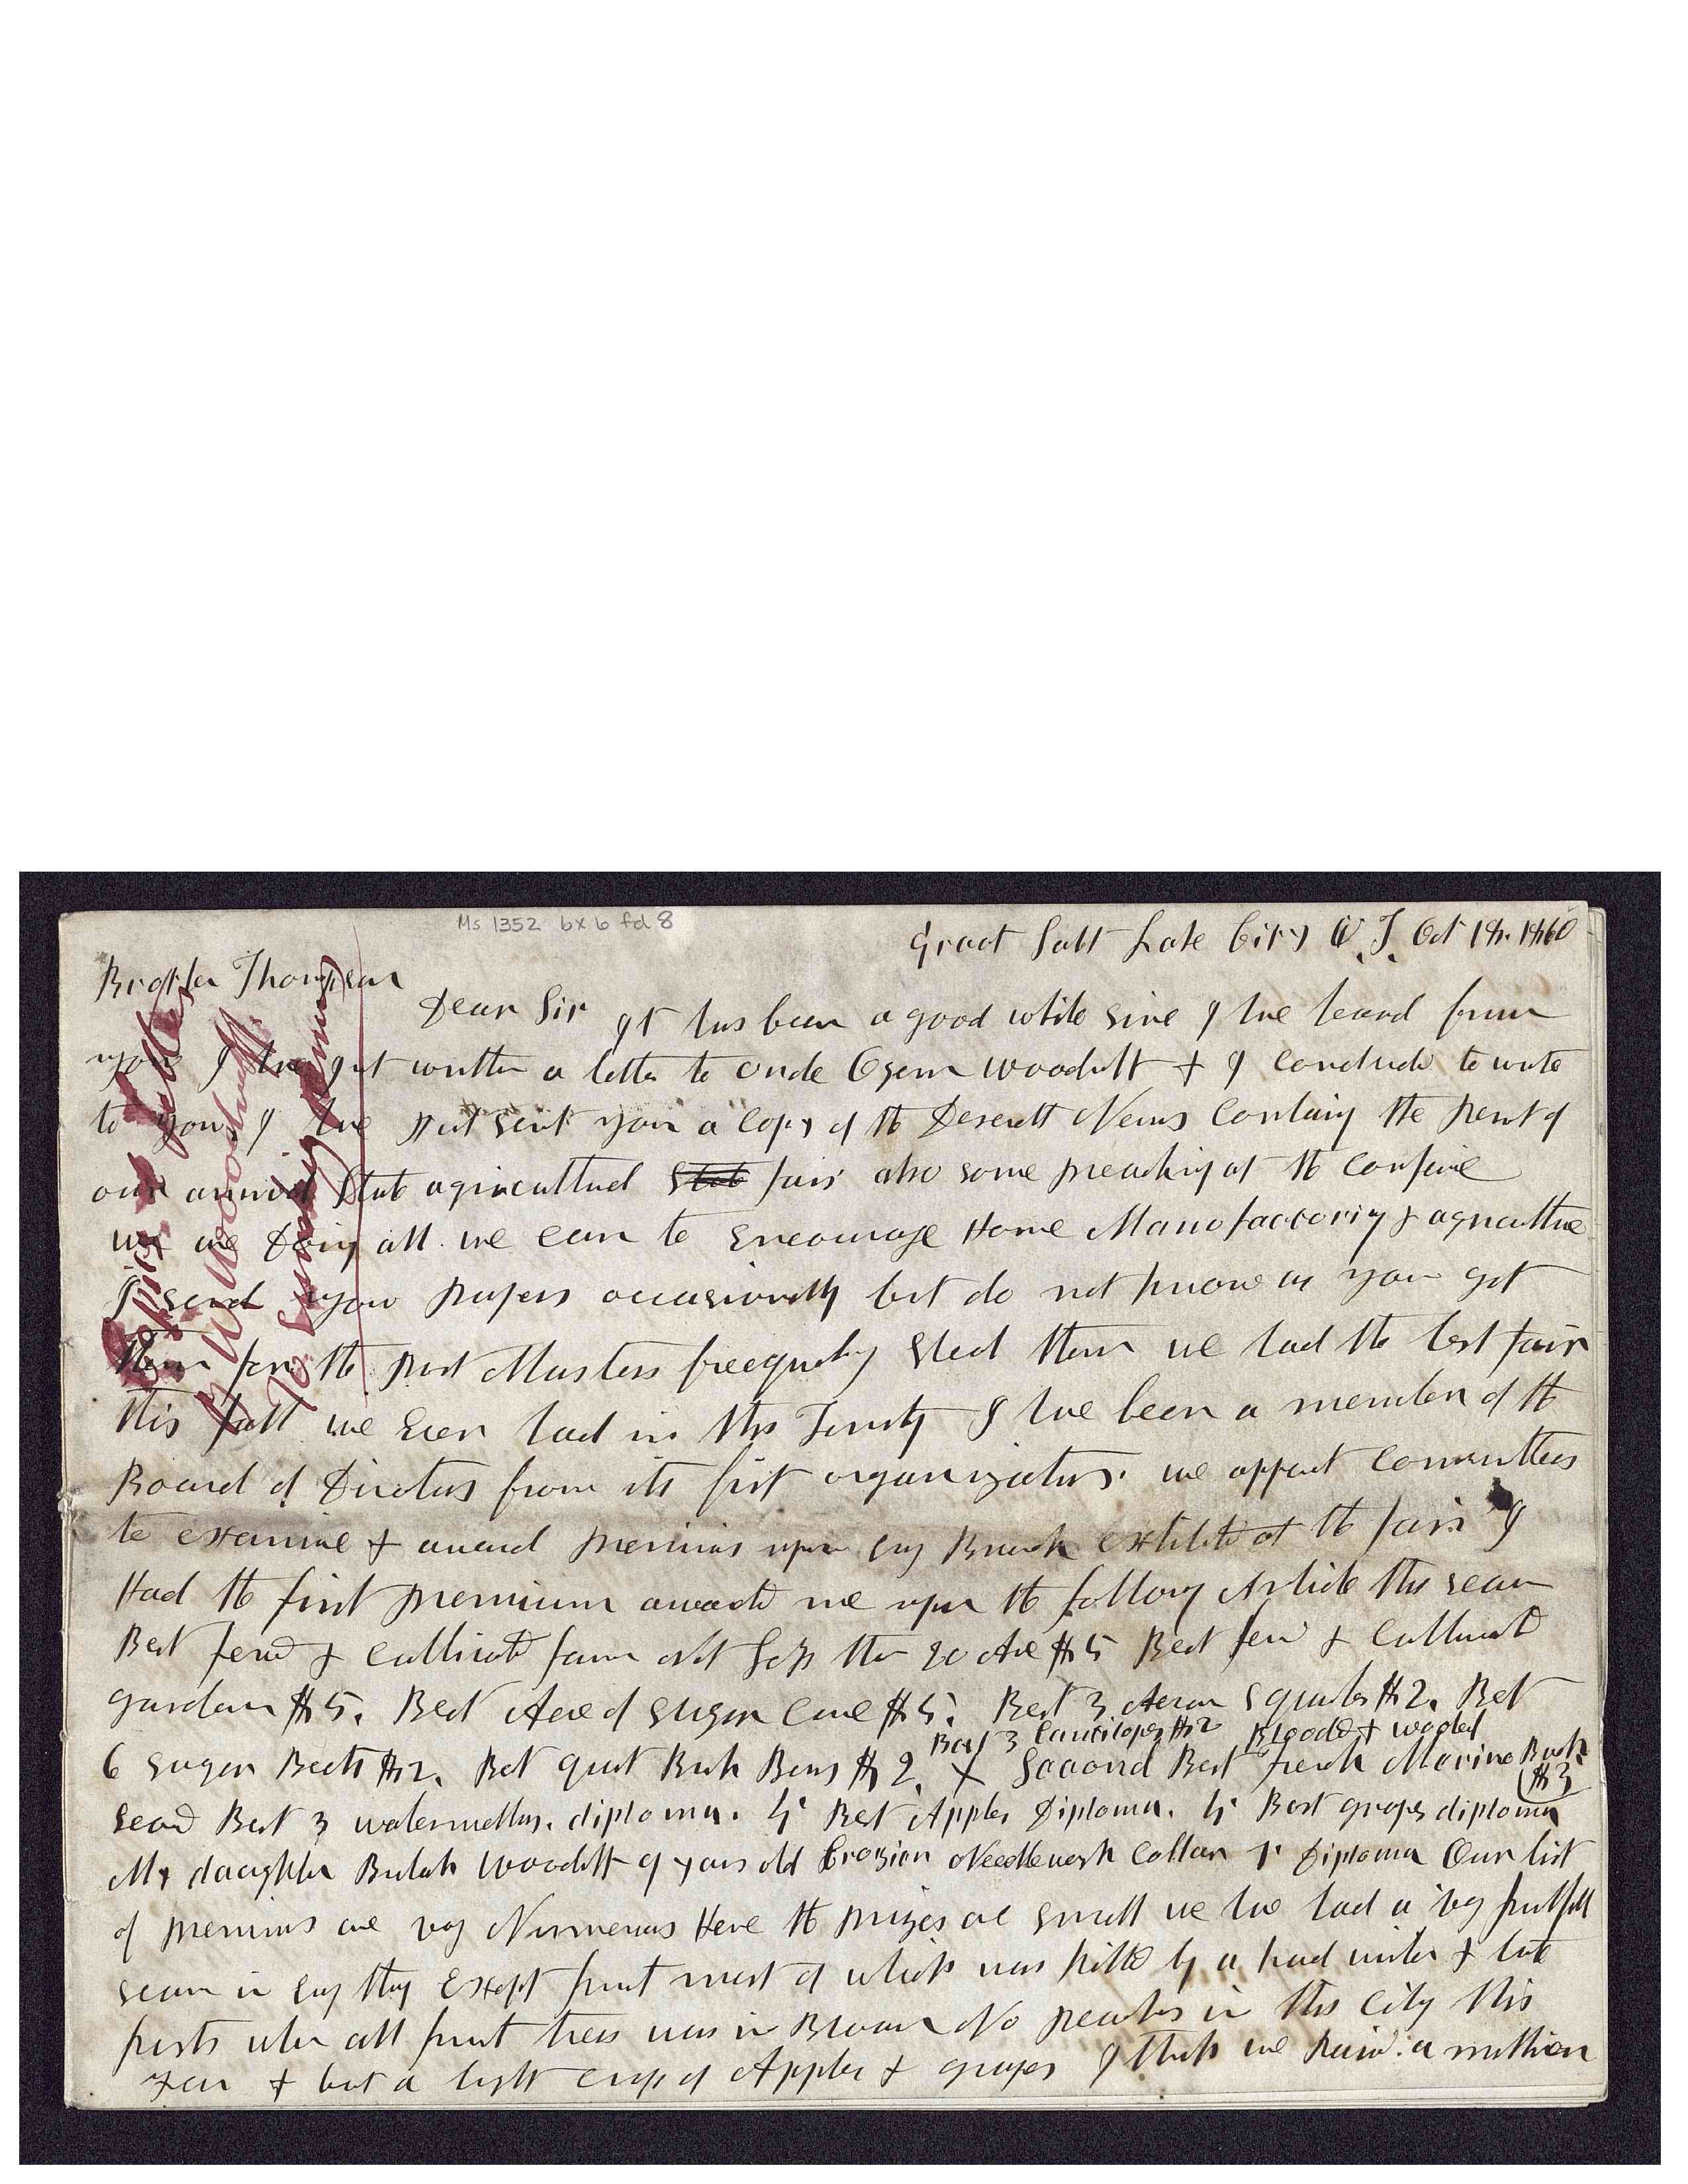 Ms 1352 bx 6 fd 8
Great Salt Lake City U.T. Oct 1860
Brother Thompson
Dear Sir It has been a good while since I have heard from
you I have just written a letter to Uncle Ozem Woodruff & I conclude to write
to you, I have just sent you a copy of the Deserett News Containg the
our annual State agricultural State fair also some preaching at the
we are Doing all we can to Encourage Home Manufactoriy & agriculture
I send you papers occasionally but do not know as you get
them for the Post Masters freequntly Steal them we had the best fair
this fall we Ever had in this I have been a member of the
Board of Directors from its first organization. we appoint Committees
to examine & award premiums upon Evry Branch at the fair I
Had the first premium awarded me upon the Article this
Best & Cultivated farm not less than 20 Acre $5 Best & Cultivated
garden $5. Best Acre of Sugar Cane $5. Best 3 squashes $2. Best
Best 3 Cantilopes $2 Blooded & wooled
6 Sugar Beets $2. Best quart Bush Beans $2. X Second Best French Marino Buck
$3
Best 3 watermellons. diploma. Best Apples Diploma. Best grapes diploma
My daughter Bulah Woodruff 9 years old Needlework Collar Diploma Our list
of premiums are vary Numerous Here the prizes are small we have had a vary fruitfull
in Evry thing Exept fruit most of which was killed by a hard winter & late
frosts when all fruit trees was in Bloom No peaches in this City this
year & but a light crop of Apples & grapes I think we a million
Copied letter
W Woodruff
To